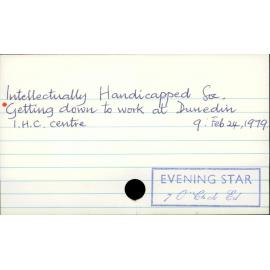 Intellectually Handicapped Soc.
Getting down to work at Dunedin
I.H.C. centre 9. Feb 24, 1979
EVENING STAR